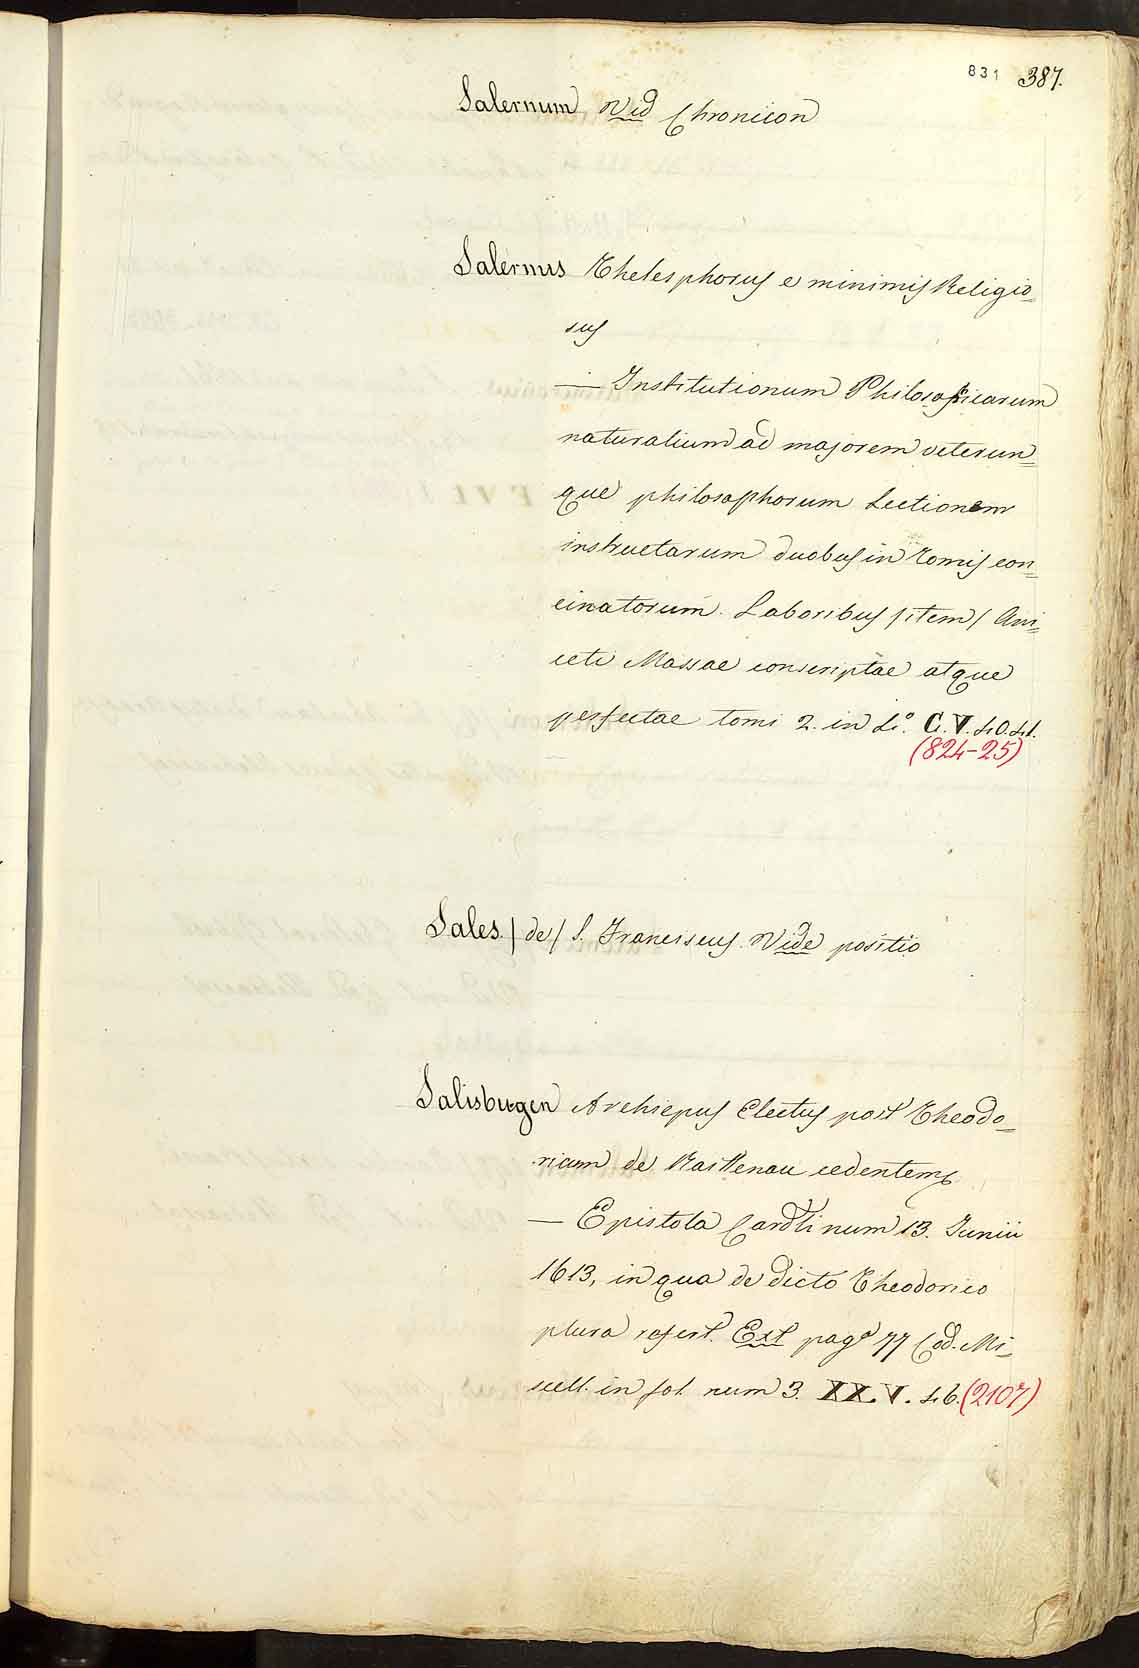 831 387.
Salernum Vid Chronicon
Salernus Thelesphorus e minimis Religio=
sus
— Institutionum Philosoficarum
naturalium ad majorem veterun=
que philosophorum Lectionem
instructarum duobus in tomis con=
cinatorum. Laboribus /item/ Ani=
ceti Massae conscriptae atque
perfectae tomi 2. in 4.º C. V. 40. 41.
(824-25)
Sales /de/ S. Franciscus Vide positio
Salisbugen Archiepus Electus post Theodo=
ricum de Raittenau cedentem
— Epistola Cardlinum 13. Junii
1613, in qua de dicto Theodorico
plura refert. Ext pagª 77 Cod. Mi=
scell. in fol. num 3. XX. V. 46. (2107)